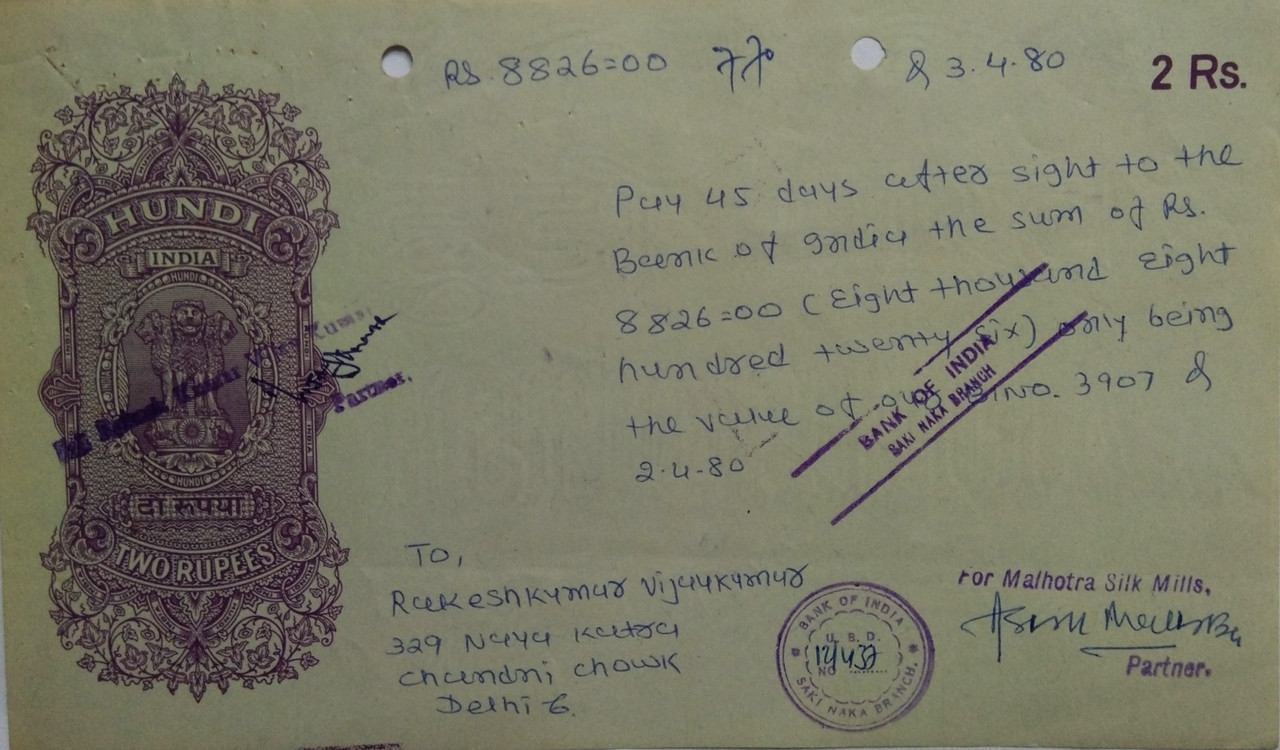 Rs. 8826=00
& 3.4.80
2 Rs.
HUNDI
INDIA
HUNDI
HUNDI
दो रूपया
TWO RUPEES
Partner.
Pay 45 days after sight to the
Bank of India the sum of Rs.
8826=00 (Eight thousand Eight
hundred twenty six) only being
the value of our No. 3907 &
2.4.80
BANK OF INDIA
SAKI NAKA BRANCH
To,
Rakeshkumar Vijaykumar
329 Naya Katra
Chandni Chowk
Delhi 6.
BANK OF INDIA
U. B. D.
NO
SAKI NAKA BRANCH.
For Malhotra Silk Mills,
Partner.